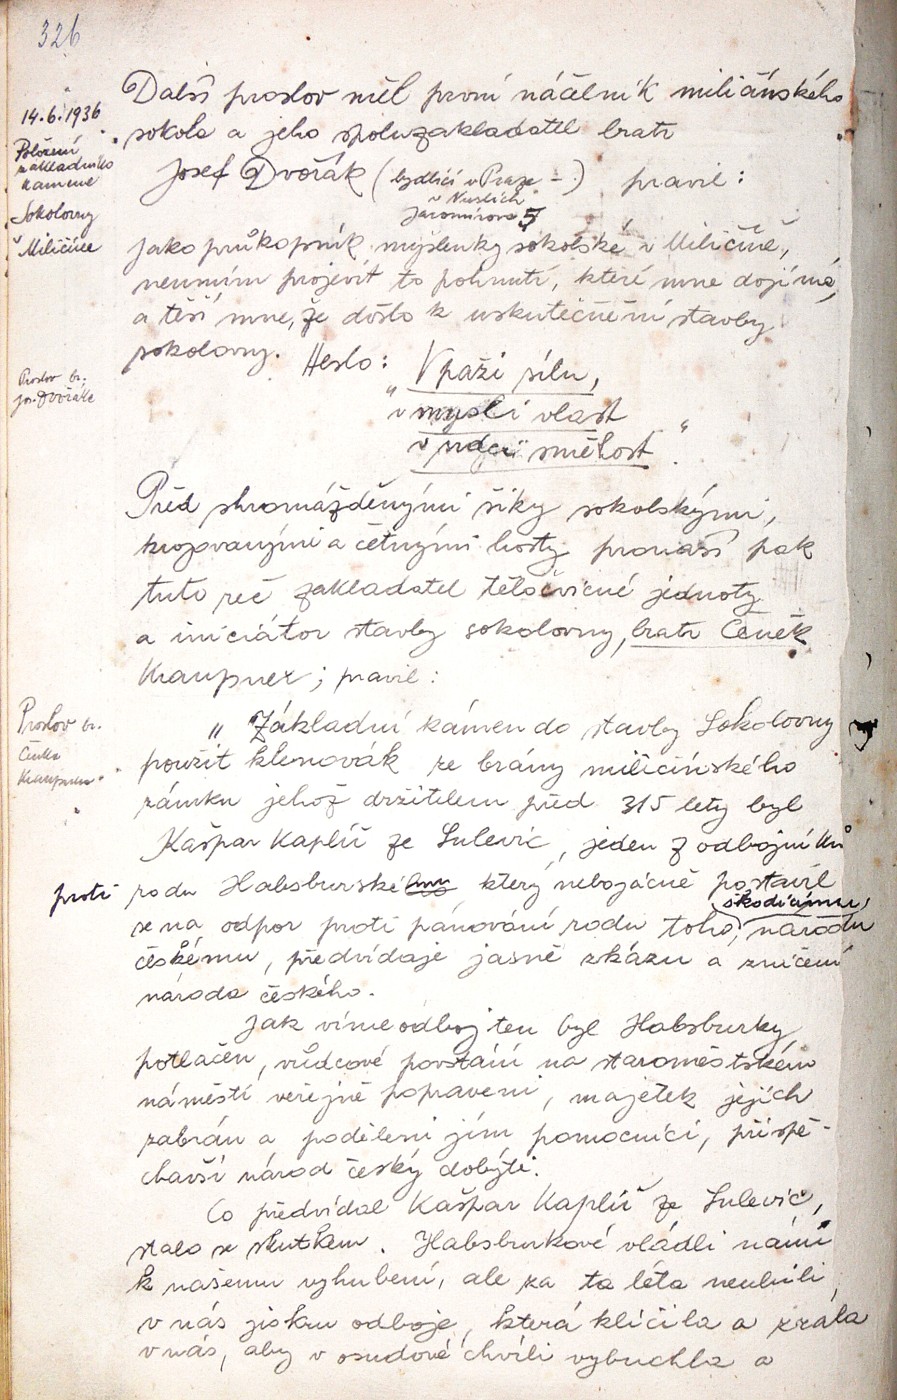 326
14.6.1936
Položení
základního
kamene
Sokolovny
v Miličíne
Další proslov měl první náčelník miličínského
sokola a jeho spoluzakladatel bratr
Josef Dvořák (bydlící v Praze -) pravil:
v Nuslích
Jaromírova 5
Jako průkopník myšlenky sokolské v Miličíně,
neumím projevit to pohnutí, které mne dojímá,
a těší mne, že došlo k uskutečnění stavby
sokolovny. Heslo: V paži sílu,
"v mysli vlast
v srdci smělost".
Proslov br.
Jos. Dvořáka
Před shromážděnými šiky sokolskými,
krojovanými a četnými hosty pronáší pak
tuto řeč zakladatel tělocvičné jednoty
a iniciátor stavby sokolovny, bratr Čeněk
Kraupner; pravil:
Proslov br.
Čeňka
Kraupnera
"Základní kámen do stavby Sokolovny
použit klenovák ze brány miličínského
zámku jehož držitelem před 315 lety byl
Kašpar Kaplíř ze Sulevic, jeden z odbojníků
proti rodu Habsburské, který nebojácně postavil
se na odpor proti pánování rodu toho, škodícímu, národu
českému, předvídaje jasně zkázu a zničení
národa českého.
Jak víme odboj ten byl Habsburky
potlačen, vůdcové povstání na staroměstském
náměstí veřejně popraveni, majetek jejich
zabrán a poděleni jím pomocníci, přispě-
chavší národ český dobýti.
Co předvídal Kašpar Kaplíř ze Sulevic,
stalo se skutkem. Habsburkové vládli námi
k našemu vyhubení, ale za ta léta neubili
v nás jiskru odboje, která klíčila a zrála
v nás, aby v osudové chvíli vybuchla a